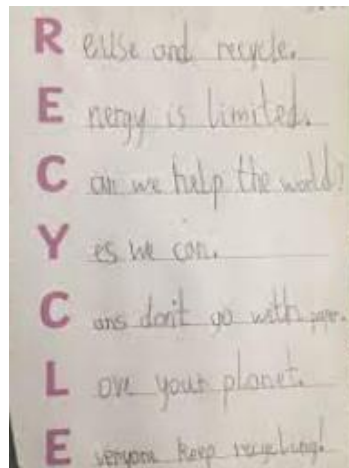 Reuse and recycle.
Energy is limited.
Can we help the world?
Yes we can.
Cans don't go with paper.
Love your planet.
Everyone keep recycling!